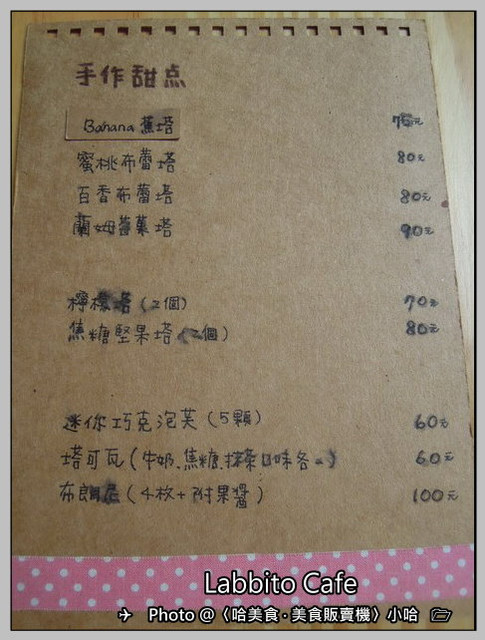 手作甜点
Banana 蕉塔 75元
蜜桃布蕾塔 80元
百香布蕾塔 80元
蘭姆葡萄塔 90元
檸檬塔（2個） 70元
焦糖堅果塔（2個） 80元
迷你巧克泡芙（5顆） 60元
塔可瓦（牛奶、焦糖、抹茶口味各一） 60元
布朗尼（4枚+附果醬） 100元
Labbito Cafe
Photo @〈哈美食·美食販賣機〉小哈